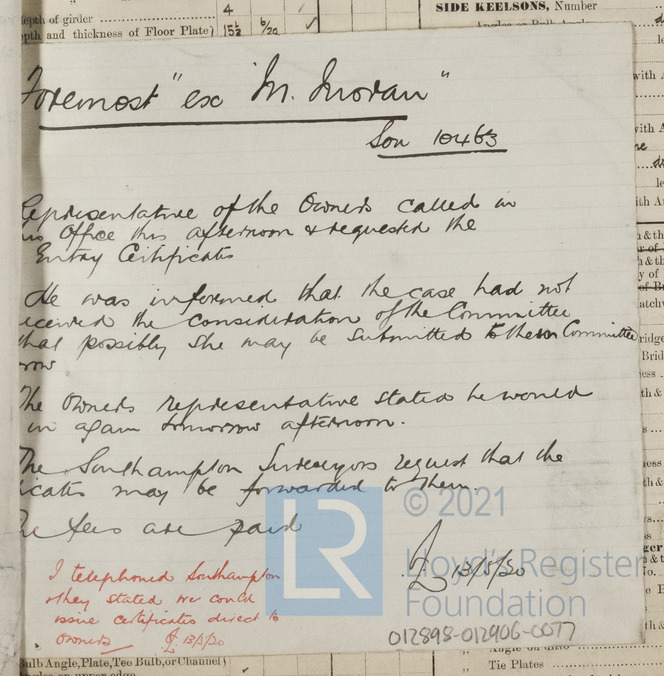 depth of girder
4
depth and thickness of Floor Plate
15½ 6/20 ✓
SIDE KEELSONS, Number
Foremost" ex "M. Moran"
Sou 10463
Representative of the Owners called in
Office this afternoon & requested the
Entry Certificates
He was informed that the case had not
received the consideration of the Committee
that possibly she may be submitted to the Committee
row
The Owners representative stated he would
in again tomorrow afternoon.
The Southampton Surveyors request that the
icates may be forwarded to them.
he fees are paid
13/5/20
I telephoned Southampton
& they stated we could
issue certificates direct to
owners 13/5/20
LR
© 2021
Lloyd's Register
Foundation
012898-012906-0077
Bulb Angle, Plate, Tee Bulb, or Channel)
Angles on upper edge
Angle on ditto
Tie Plates